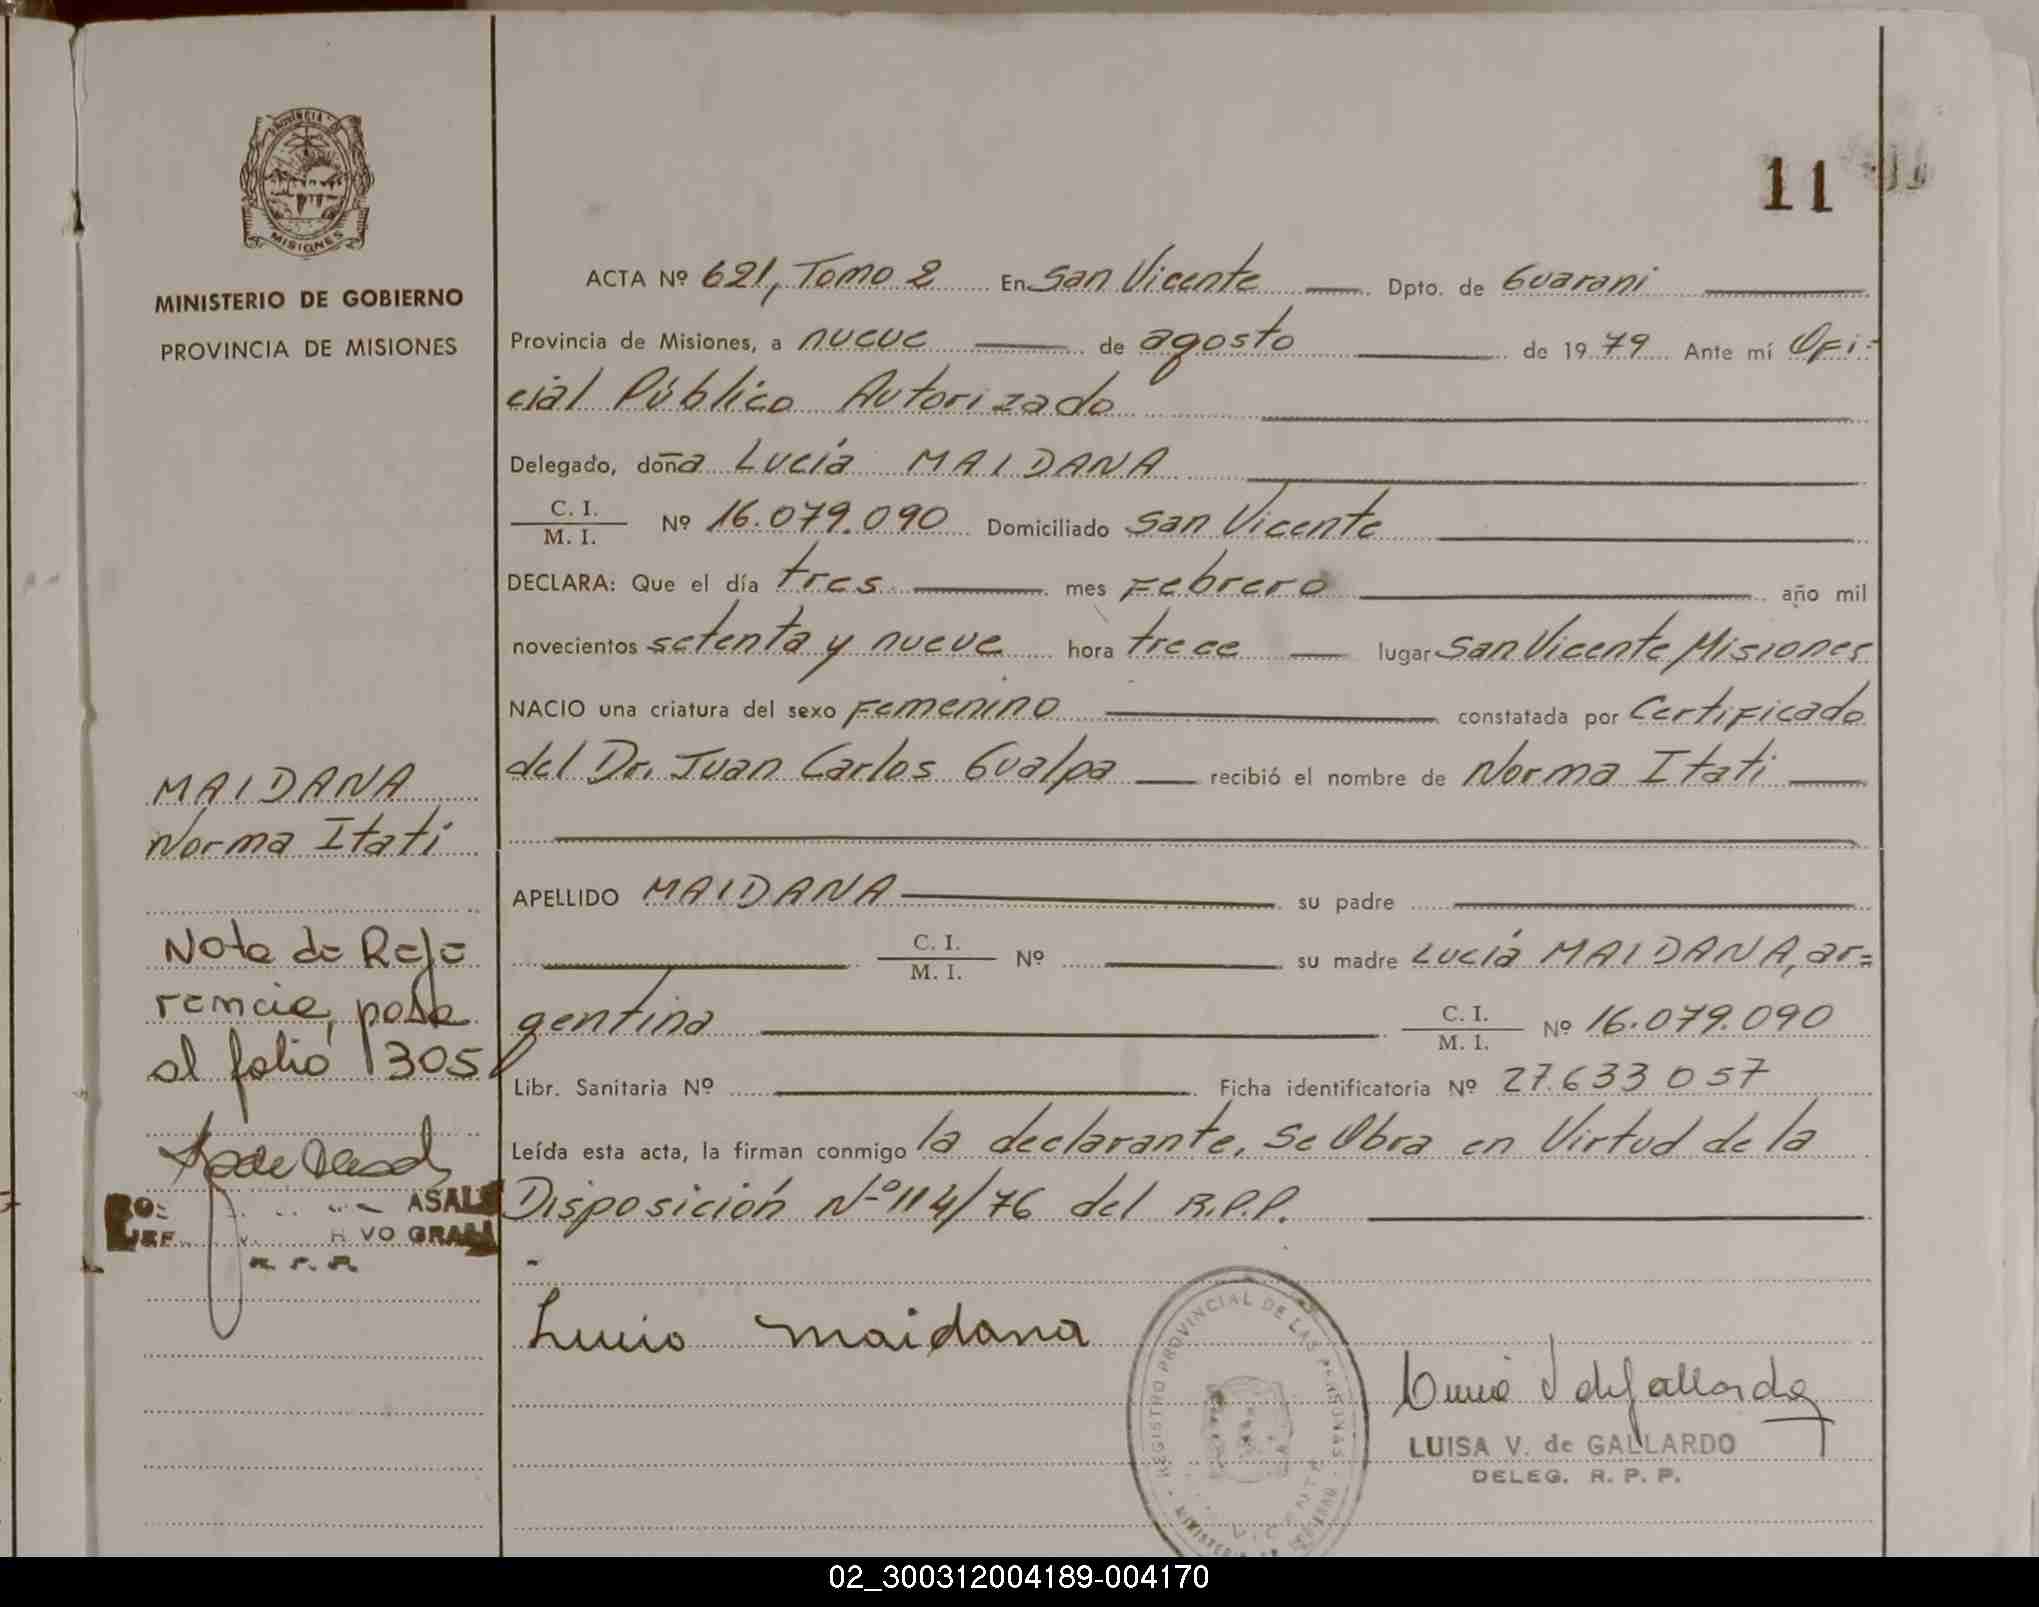 PROVINCIA DE
MISIONES
MINISTERIO DE GOBIERNO
PROVINCIA DE MISIONES
11
ACTA Nº 621, Tomo 2 En San Vicente Dpto. de Guarani
Provincia de Misiones, a nueve de agosto de 1979 Ante mí Ofi-
cial Público Autorizado
Delegado, doña Lucía MAIDANA
C. I.
M. I. Nº 16.079.090 Domiciliado San Vicente
DECLARA: Que el día tres mes Febrero año mil
novecientos setenta y nueve hora trece lugar San Vicente Misiones
NACIO una criatura del sexo Femenino constatada por Certificado
del Dr. Juan Carlos Gualpa recibió el nombre de Norma Itati
MAIDANA
Norma Itati
APELLIDO MAIDANA su padre
C. I.
M. I. Nº su madre Lucía MAIDANA, ar=
gentina C. I.
M. I. Nº 16.079.090
Libr. Sanitaria Nº Ficha identificatoria Nº 27.633057
Leída esta acta, la firman conmigo la declarante, Se Obra en Virtud de la
Disposición Nº 114/76 del R.P.P.
Nota de Refe
rencia, pasa
al folio 1305
ASAL
VO GRAL
R. P. P.
Lucia maidana
REGISTRO PROVINCIAL DE LAS PERSONAS
LUISA V. de GALLARDO
DELEG. R. P. P.
02_300312004189-004170